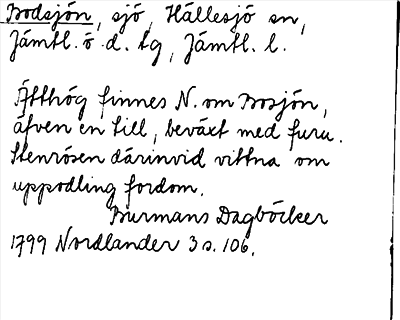 Bodsjön, sjö, Hällesjö sn,
Jämtl. ö. d. tg, Jämtl. l.
Ätthög finnes N. om Bosjön,
äfven en till, beväxt med furu.
Stenrösen därinvid vittna om
uppodling fordom.
Burmans Dagböcker
1799 Nordlander 3 s. 106.